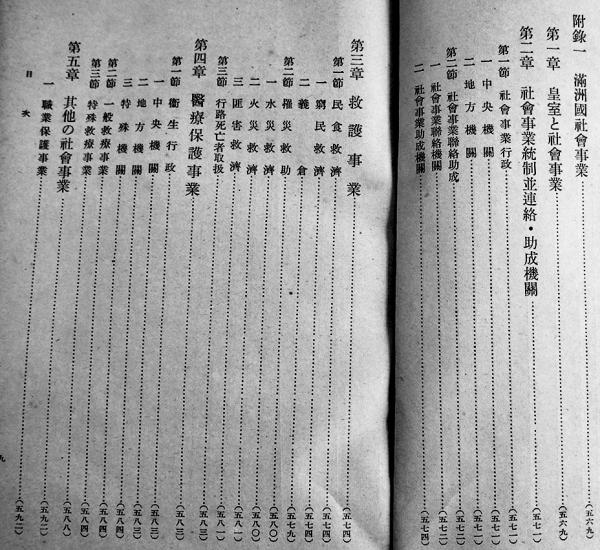 附錄一　滿洲國社會事業……（五六九）
第一章　皇室と社會事業……（五六九）
第二章　社會事業統制並連絡・助成機關……（五七一）
第一節　社會事業行政……（五七一）
一　中央機關……（五七一）
二　地方機關……（五七二）
第二節　社會事業聯絡助成……（五七二）
一　社會事業聯絡機關……（五七二）
二　社會事業助成機關……（五七四）
第三章　救護事業……（五七四）
第一節　民食救濟……（五七四）
一　窮民救濟……（五七四）
二　義倉……（五七四）
第二節　罹災救助……（五七九）
一　水災救濟……（五八〇）
二　火災救濟……（五八〇）
三　匪害救濟……（五八一）
第三節　行路死亡者取扱……（五八一）
第四章　醫療保護事業……（五八三）
第一節　衞生行政……（五八三）
一　中央機關……（五八三）
二　地方機關……（五八三）
三　特殊機關……（五八四）
第二節　一般救療事業……（五八四）
第三節　特殊救療事業……（五八四）
第五章　其他の社會事業……（五八八）
一　職業保護事業……（五九二）
目次
九